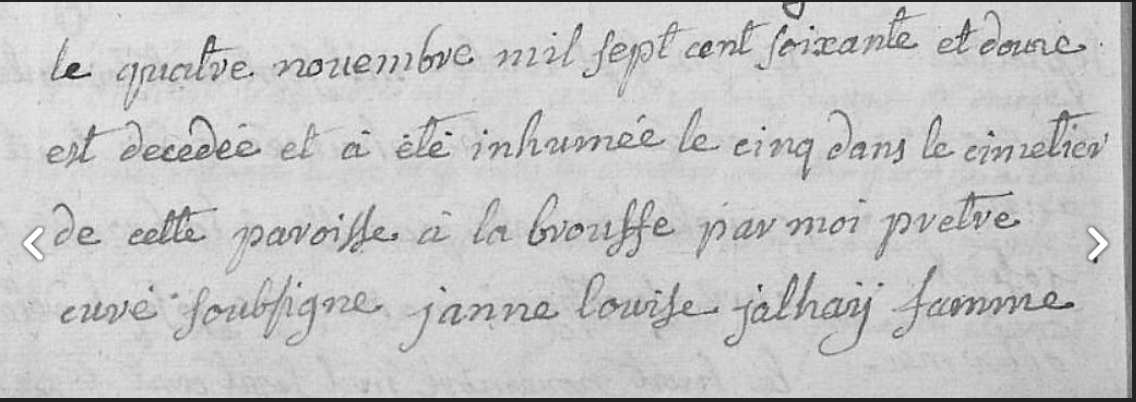 le quatre novembre mil sept cent soixante et douze
est decedée et à été inhumée le cinq dans le cimetier
de cette paroisse à la brousse par moi pretre
curé soubsigne janne louise jalhaij famme